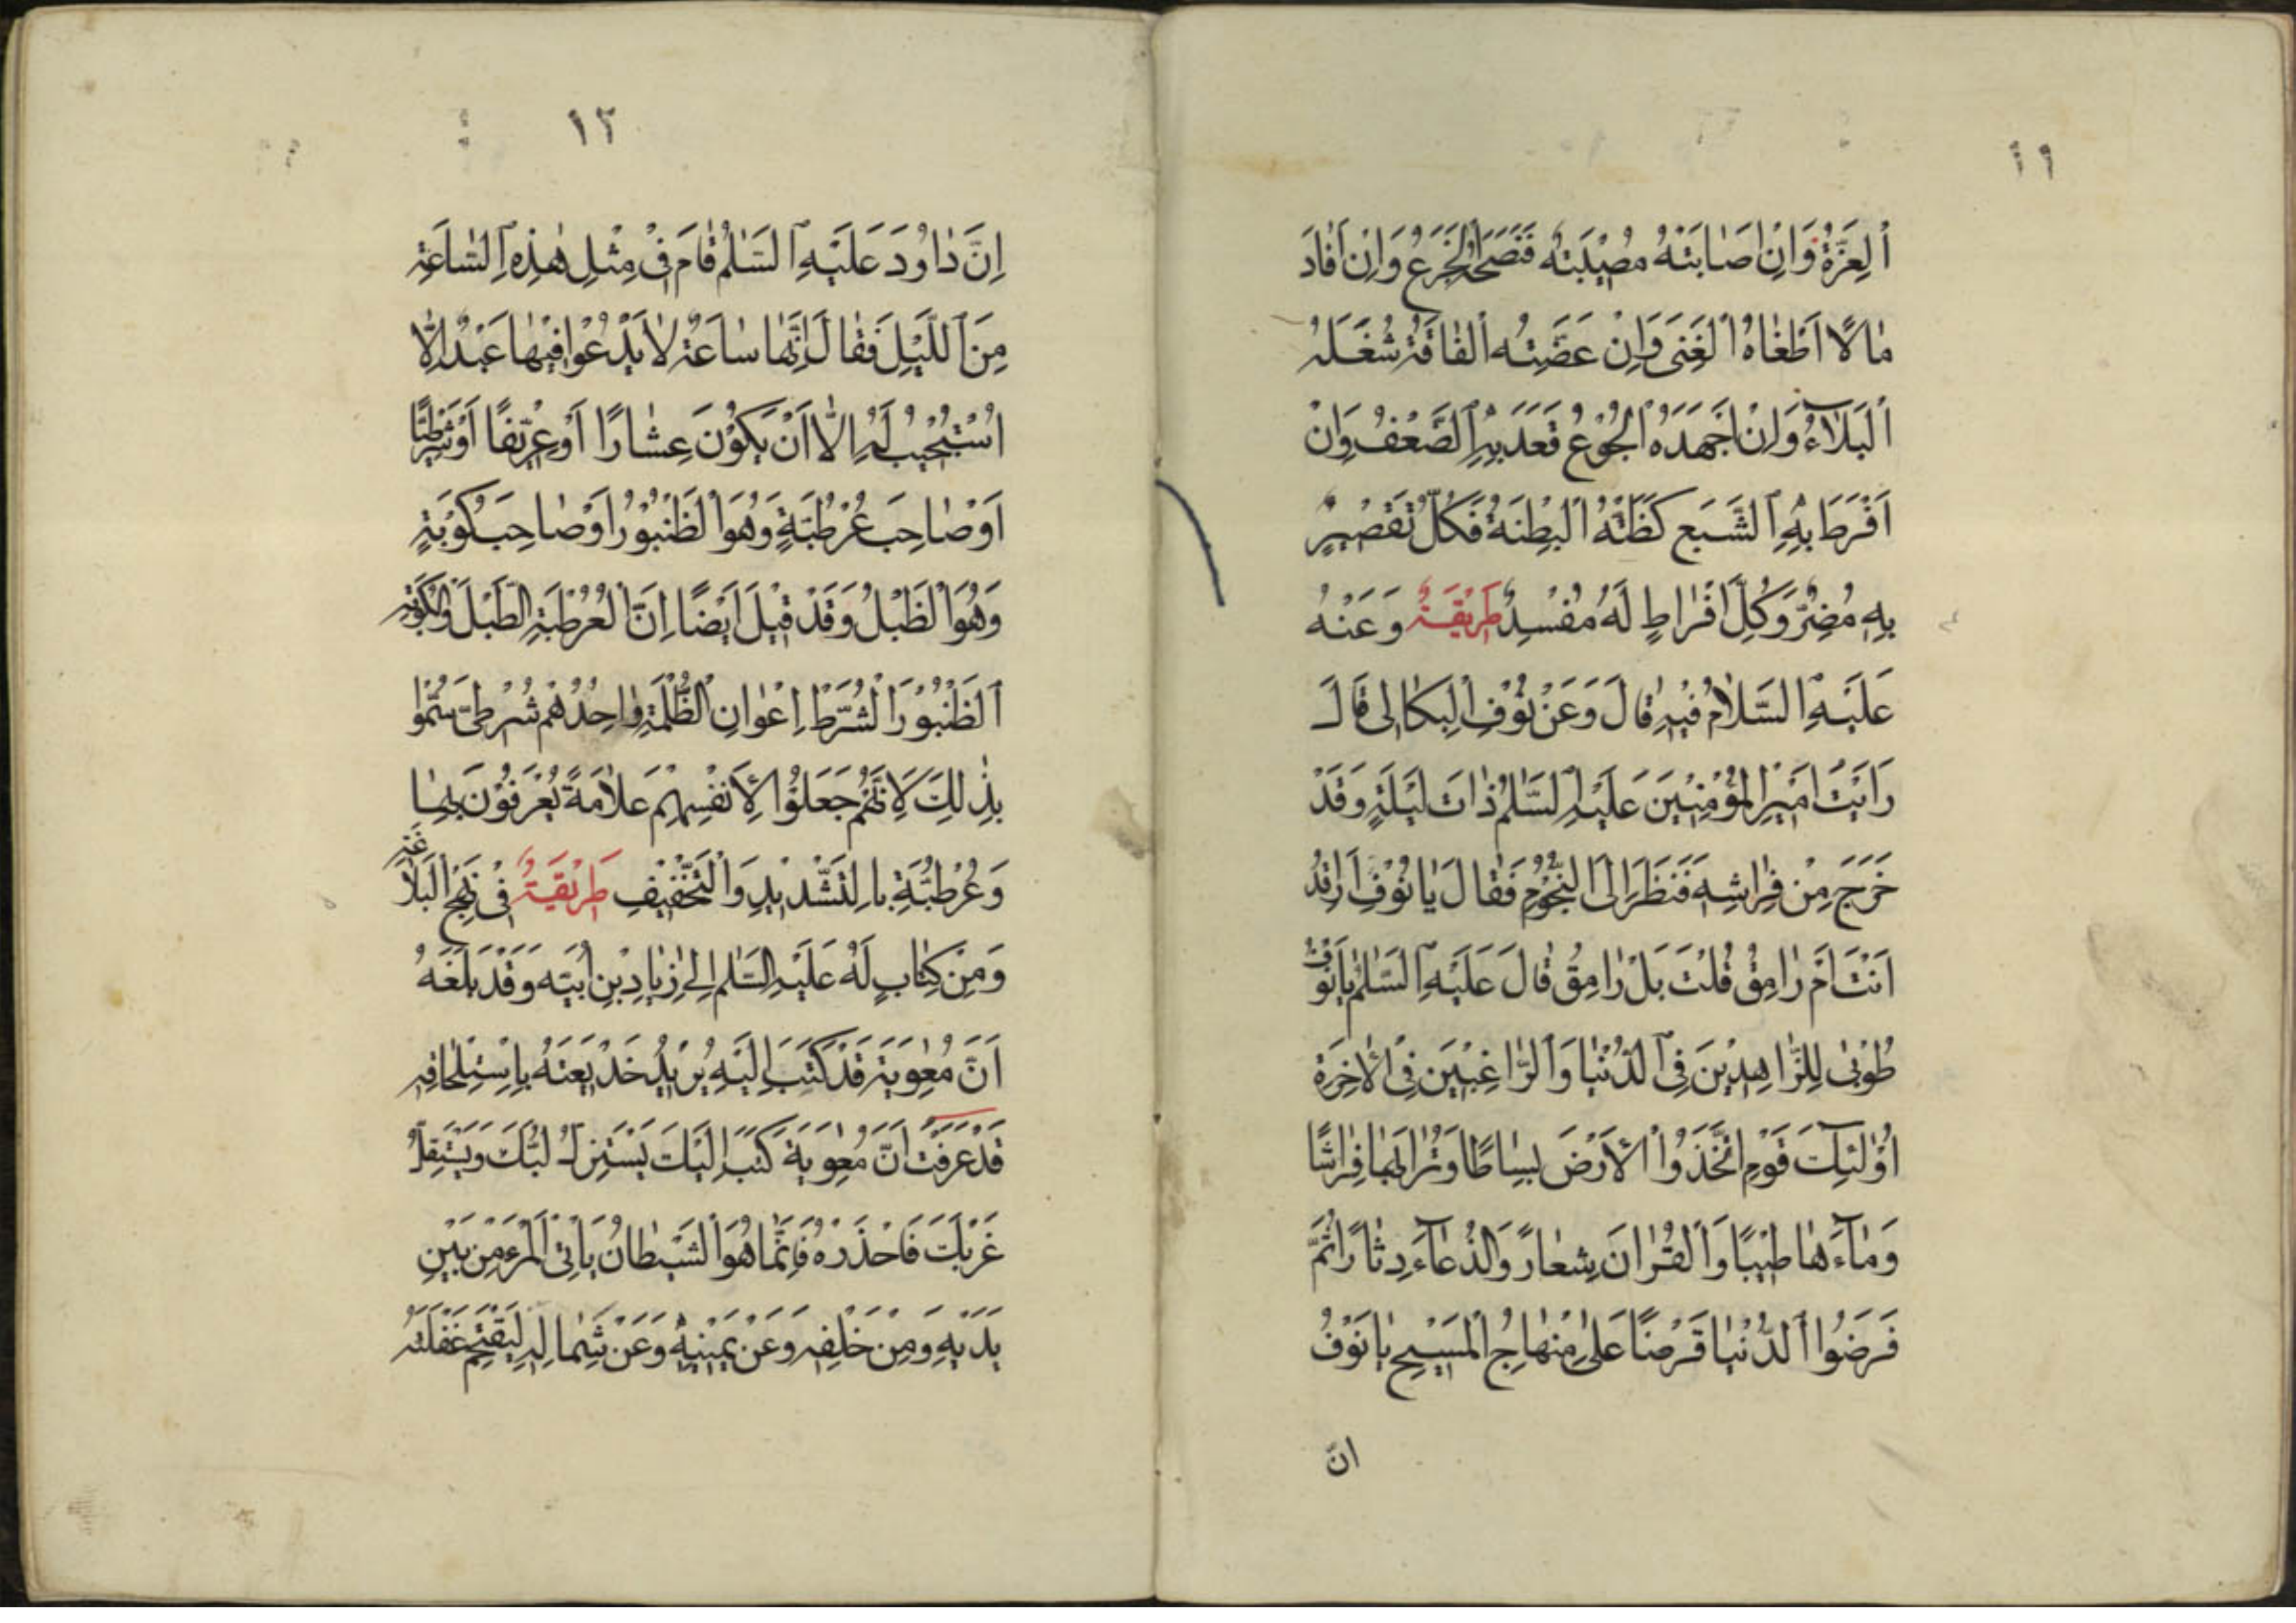 ١١
اَلْعِزَّةُ وَاِنْ اَصَابَتْهُ مُصِيْبَتُه فَضَحَهُ الْجَزَعُ وَاِنْ اَفَادَ
مَالًا اَطْغَاهُ الْغِنَى وَاِنْ عَضَّتْهُ الْفَاقَةُ شَغَلَهُ
اَلْبَلَآءُ وَاِنْ اَجْهَدَهُ الْجُوْعُ قَعَدَ بِهِ الضَّعْفُ وَاِنْ
اَفْرَطَ بِهِ الشَّبَعُ كَظَّتْهُ الْبِطْنَةُ فَكُلُّ تَقْصِيْرٍ
بِهِ مُضِرٌّ وَكُلُّ اِفْرَاطٍ لَهُ مُفْسِدٌ طَرِيْقَةٌ وَعَنْهُ
عَلَيْهِ السَّلَامُ فِيْهِ قَالَ وَعَنْ نَوْفِ الْبِكَالِى قَالَ
رَاَيْتُ اَمِيْرَ الْمُؤْمِنِيْنَ عَلَيْهِ السَّلٰمُ ذَاتَ لَيْلَةٍ وَقَدْ
خَرَجَ مِنْ فِرَاشِهِ فَنَظَرَ اِلَى النُّجُوْمِ فَقَالَ يَا نَوْفُ اَرَاقِدٌ
اَنْتَ اَمْ رَامِقٌ قُلْتُ بَلْ رَامِقٌ قَالَ عَلَيْهِ السَّلٰمُ يَا نَوْفُ
طُوْبٰى لِلزَّاهِدِيْنَ فِى الدُّنْيَا وَالرَّاغِبِيْنَ فِى الْاٰخِرَةِ
اُوْلٰئِكَ قَوْمٌ اتَّخَذُوا الْاَرْضَ بِسَاطًا وَتُرَابَهَا فِرَاشًا
وَمَآءَهَا طِيْبًا وَالْقُرْاٰنَ شِعَارً وَالدُّعَآءَ دِثَارًا ثُمَّ
قَرَضُوا الدُّنْيَا قَرْضًا عَلٰى مِنْهَاجِ الْمَسِيْحِ يَا نَوْفُ
انّ
١٢
اِنَّ دَاوُدَ عَلَيْهِ السَّلٰمُ قَامَ فِىْ مِثْلِ هٰذِهِ السَّاعَةِ
مِنَ اللَّيْلِ فَقَالَ اِنَّهَا سَاعَةٌ لَا يَدْعُوْا فِيْهَا عَبْدٌ اِلَّا
اسْتُجِيْبَ لَهُ اِلَّا اَنْ يَكُوْنَ عِشَارًا اَوْ عِرِّيْفًا اَوْ شُرْطِيًّا
اَوْ صَاحِبَ عُرْطُبَةٍ وَهُوَ الطَّنْبُوْرُ اَوْ صَاحِبَ كُوْبَةٍ
وَهُوَ الطَّبْلُ وَقَدْ قِيْلَ اَيْضًا اِنَّ الْعُرْطُبَةَ الطَّبْلُ وَالْكُوْبَةَ
اَلطَّنْبُوْرُ الشُّرَطُ اِعْوَانِ الظُّلْمَةِ وَاحِدُهُمْ شُرْطِىٌّ سُمُّوْا
بِذٰلِكَ لِاَنَّهُمْ جَعَلُوْا لِاَنْفُسِهِمْ عَلَامَةً يُعْرَفُوْنَ بِهَا
وَعُرْطُبَّةِ بِالتَّشْدِيْدِ وَالتَّخْفِيْفِ طَرِيْقَةٌ فِىْ نَهْجِ الْبَلَاغَةِ
وَمِنْ كِتَابٍ لَهُ عَلَيْهِ السَّلٰمُ اِلٰى زِيَادِ بْنِ اَبِيْهِ وَقَدْ بَلَغَهُ
اَنَّ مُعٰوِيَةَ قَدْ كَتَبَ اِلَيْهِ يُرِيْدُ خَدِيْعَتَهُ بِاِسْتِلْحَاقِهِ
قَدْ عَرَفْتُ اَنَّ مُعٰوِيَةَ كَتَبَ اِلَيْكَ يَسْتَنْزِلُ لُبَّكَ وَيَسْتَفِلُّ
غَرْبَكَ فَاحْذَرْهُ فَاِنَّمَا هُوَ الشَّيْطَانُ يَاْتِى الْمَرْءَ مِنْ بَيْنِ
يَدَيْهِ وَمِنْ خَلْفِهِ وَعَنْ يَمِيْنِهِ وَعَنْ شِمَالِهِ لِيَقْتَحِمَ غَفْلَتَهُ